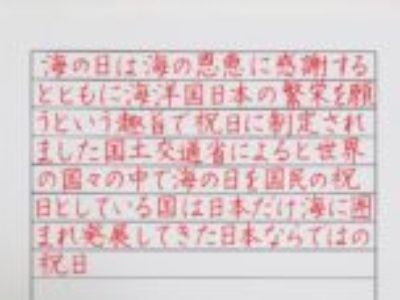 海の日は海の恩恵に感謝する
とともに海洋国日本の繁栄を願
うという趣旨で祝日に制定され
ました国土交通省によると世界
の国々の中で海の日を国民の祝
日としている国は日本だけ海に囲
まれ発展してきた日本ならではの
祝日